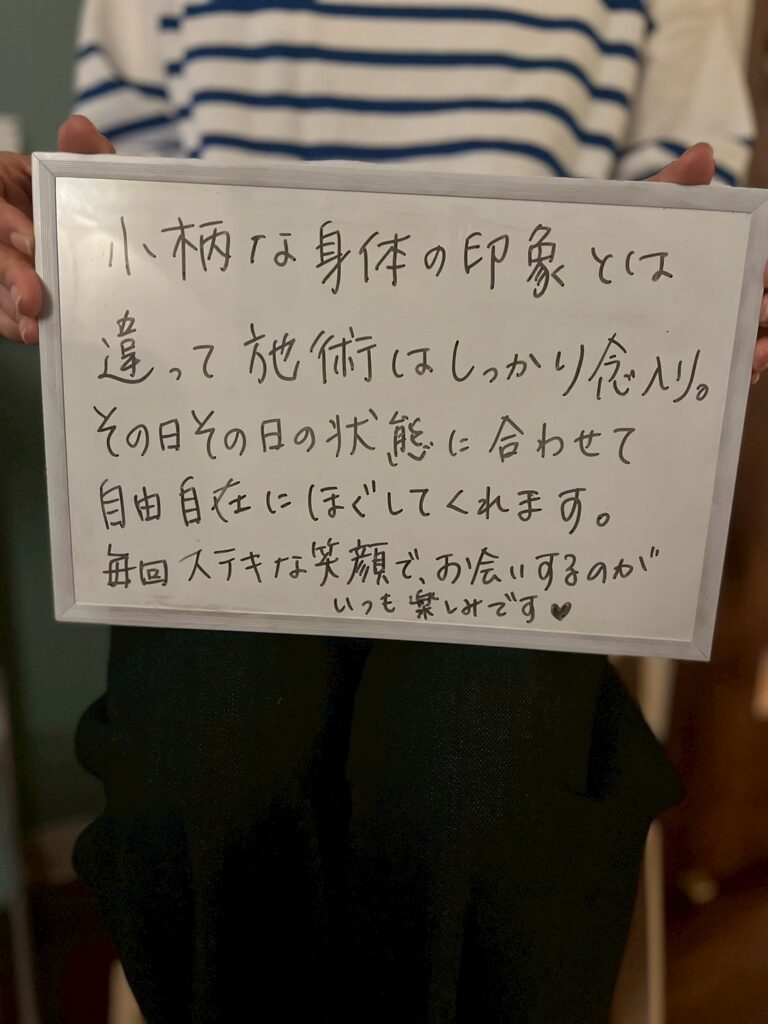 小柄な身体の印象とは
違って施術はしっかり念入り。
その日その日の状態に合わせて
自由自在にほぐしてくれます。
毎回ステキな笑顔で、お会いするのが
いつも楽しみです♥